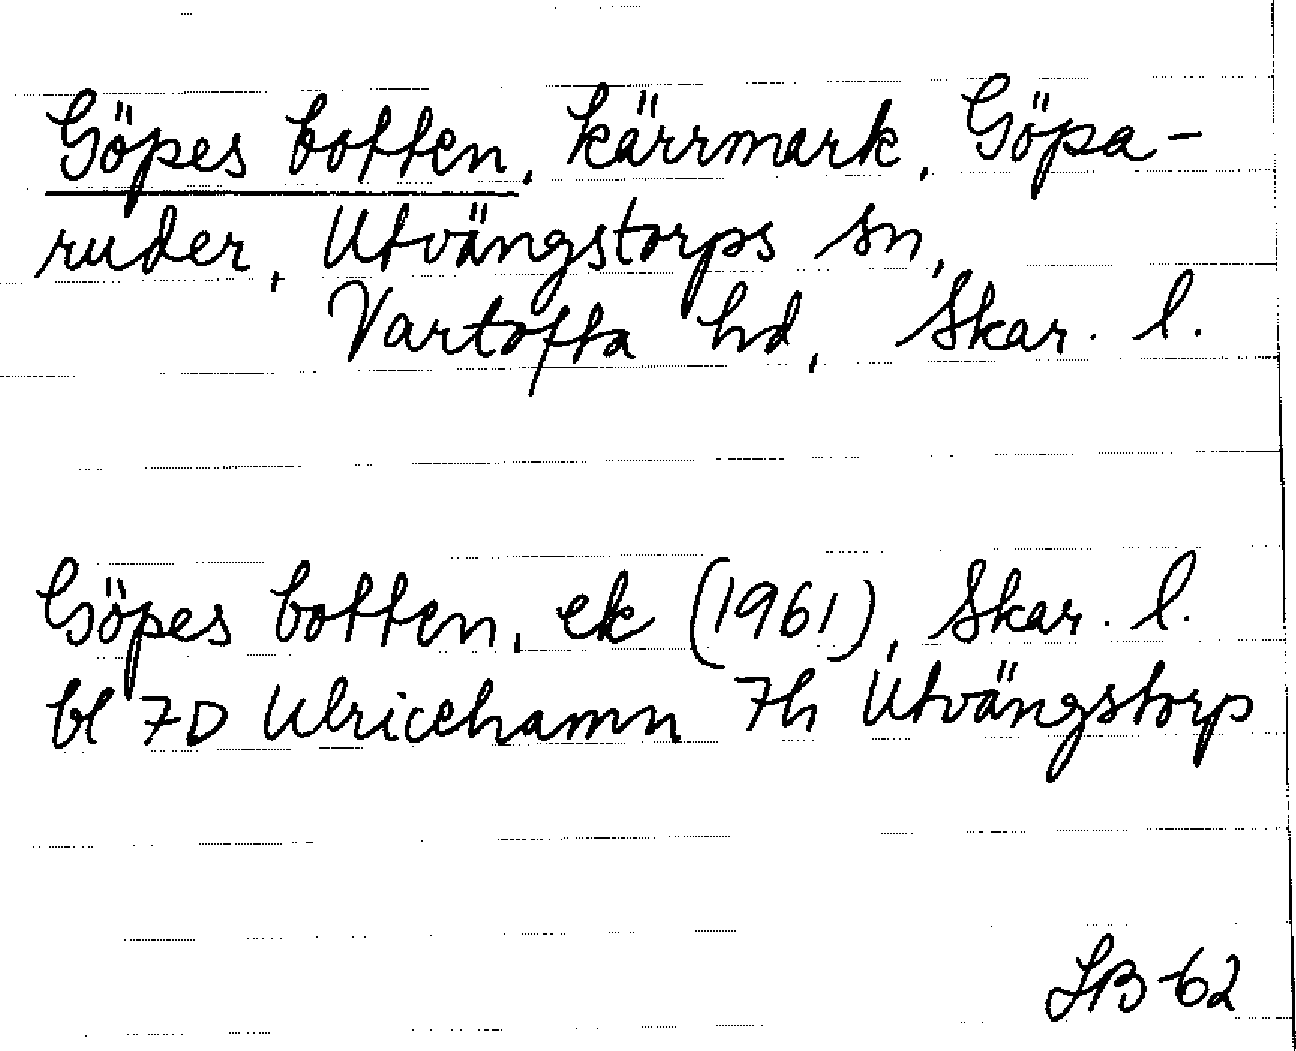 Göpes botten, kärrmark, Göpa-
ruder, Utvängstorps sn,
Vartofta hd, Skar. l.
Göpes botten, ek (1961), Skar. l.
bl 7D Ulricehamn 7h Utvängstorp
LB-62